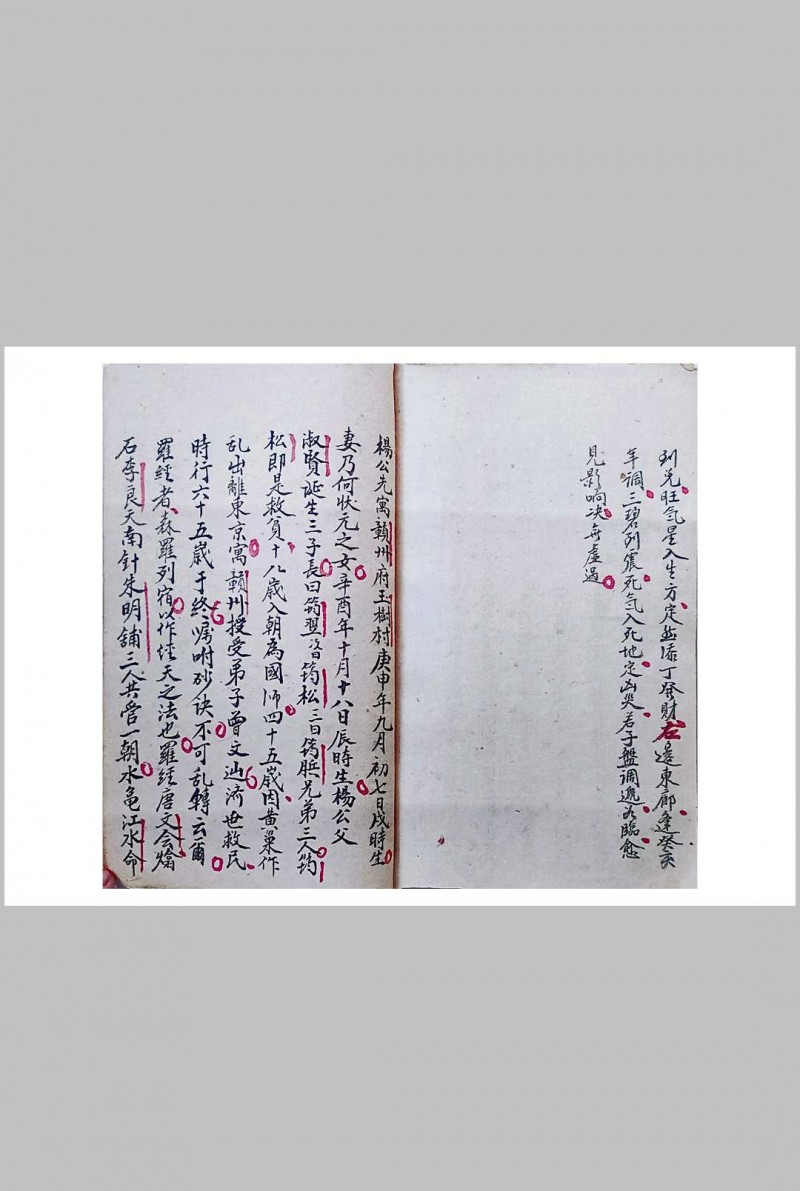 列兑旺氣星入生方定然添丁發財左邊東廊逢癸亥
年調三碧列震死气入死地定凶災若子盤調遞為臨愈
見影响决無虛過
楊公先寓贑州府玉樹村庚申年九月初七日戌時生
妻乃何狀元之女辛酉年十月十八日辰時生楊公父
淑賢誕生三子長曰筠翌次曰筠松三曰筠賑兄弟三人筠
松即是救貧十八歲入朝為國师四十五歲因黄巢作
乱出離東京寓贑州授受弟子曾文辿濟世救民
時行六十五歲于终嘱咐砂訣不可乱轉云爾
羅經者森羅列宿以作經天之法也羅經唐文会燔
石李良天南針朱明舖三人共啓一朝水龟江水命